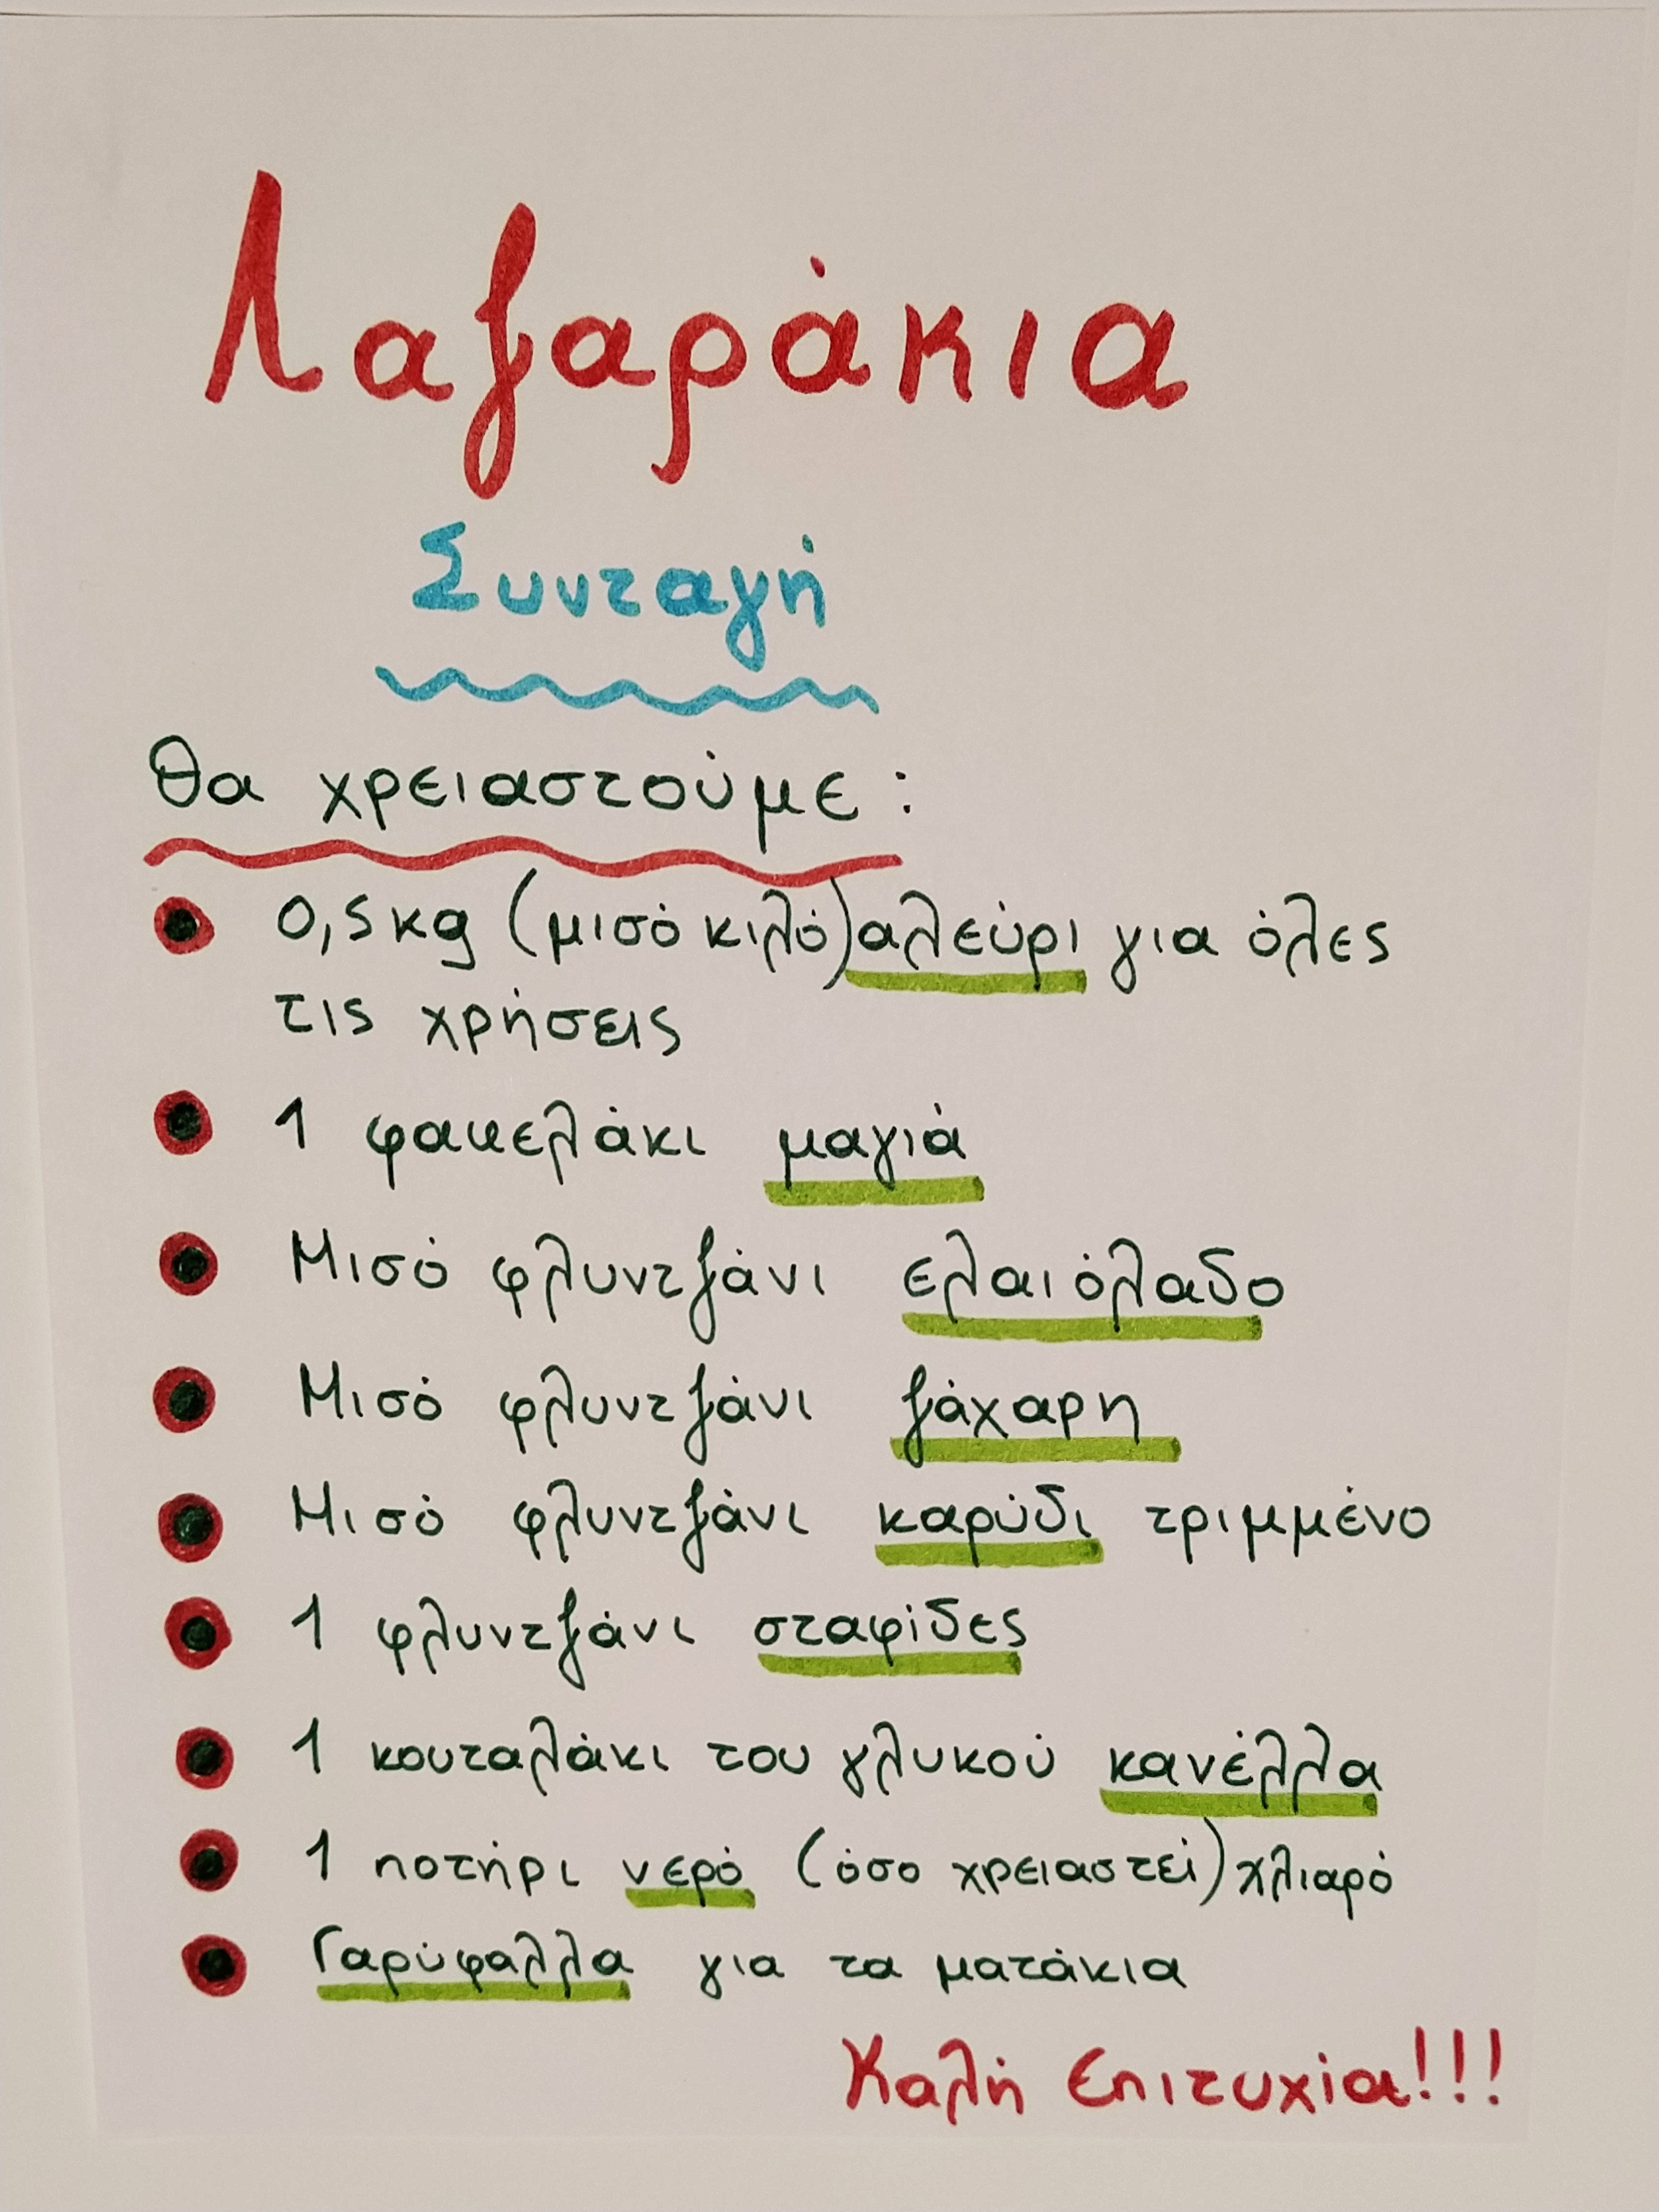 Λαζαράκια
Συνταγή
Θα χρειαστούμε:
0,5kg (μισό κιλό) αλεύρι για όλες
τις χρήσεις
1 φακελάκι μαγιά
Μισό φλυντζάνι ελαιόλαδο
Μισό φλυντζάνι ζάχαρη
Μισό φλυντζάνι καρύδι τριμμένο
1 φλυντζάνι σταφίδες
1 κουταλάκι του γλυκού κανέλλα
1 ποτήρι νερό (όσο χρειαστεί) χλιαρό
Γαρύφαλλα για τα ματάκια
Καλή Επιτυχία!!!